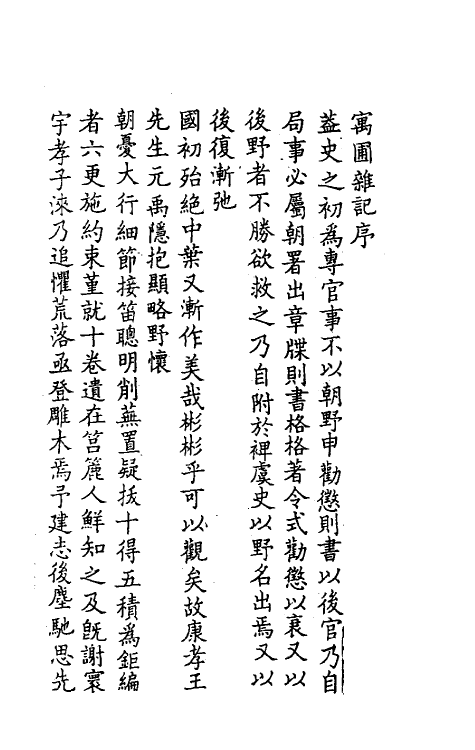 寓圃雜記序
葢史之初為專官事不以朝野申勸懲則書以後官乃自
局事必屬朝署出章牒則書格格著令式勸懲以衰又以
後野者不勝欲救之乃自附於裨虞史以野名出焉又以
後復漸弛
國初殆絕中葉又漸作美哉彬彬乎可以觀矣故康孝王
先生元禹隱抱顯略野懷
朝憂大行細節接笛聰明削蕪置疑拔十得五積為鉅編
者六更施約束堇就十卷遺在筥簏人鮮知之及既謝寰
宇孝子淶乃追懼荒落亟登雕木焉予建志後塵馳思先